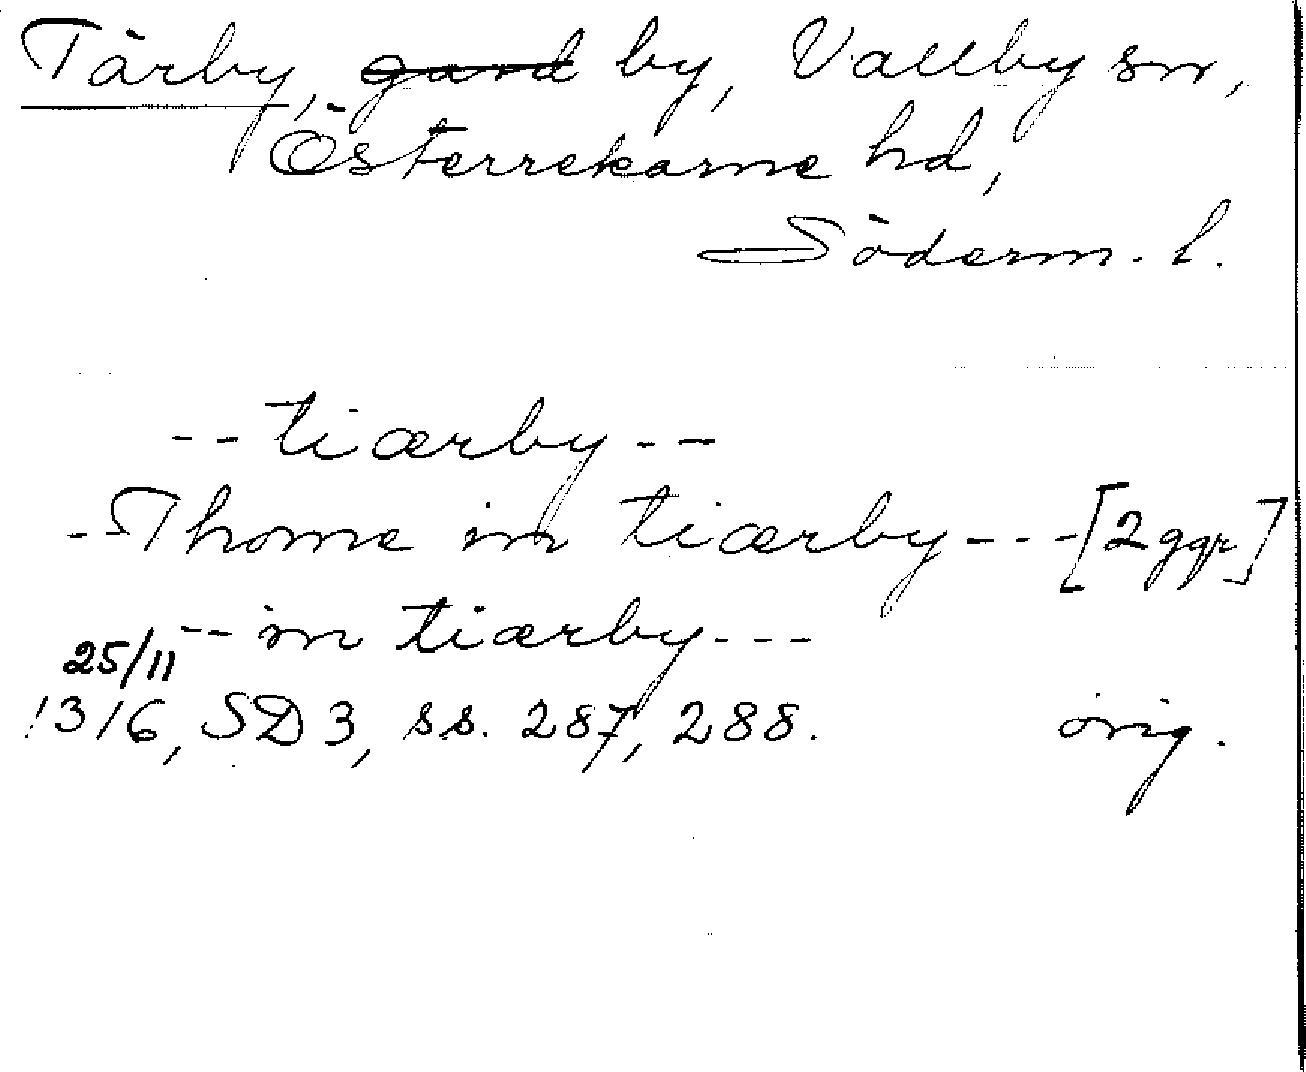 Tärby, gård by, Vallby sn,
Österrekarne hd,
Söderm. l.
-- tiærby --
-- Thome in tiærby --- [2 ggr]
-- in tiærby ---
25/11
1316, SD 3, ss. 287, 288. orig.